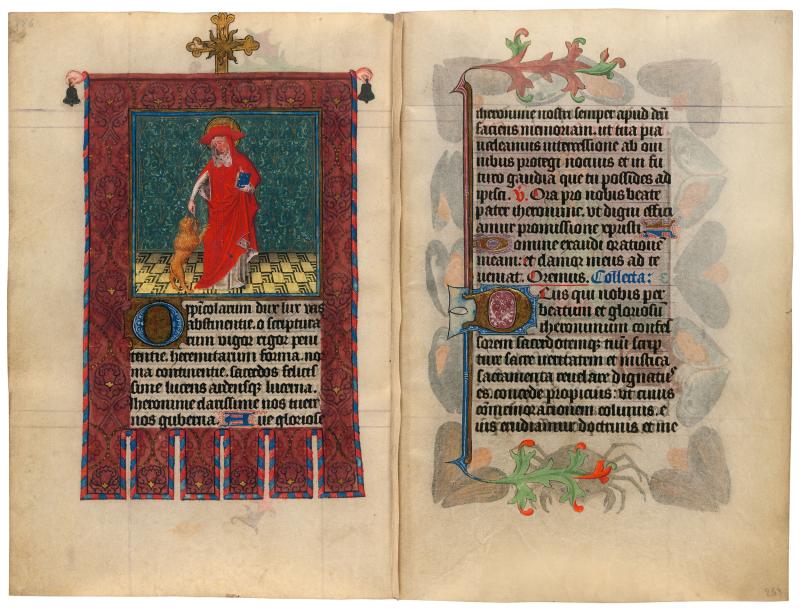 O rp̄icolarum dux lux vas
abstinentie. o scriptura
rum vigor rigor peni
tentie. heremitarum forma. nor
ma continentie. sacerdos felicis
sime lucens ardensq; lucerna.
Iheronime clarissime nos tuere
nos guberna. Aue gloriose
iheronime nostri semper apud deū
faciens memoriam. ut tua pia
intercessione ab om
nibus protegi nociuis et in fu
turo gaudia que tu possides ad
ipisci. V. Ora pro nobis beate
pater iheronime. vt digni effici
amur promissione xpristi
Domine exaudi oratione
meam: et clamor meus ad te
ueniat. Oremus. Collecta:
Deus qui nobis per
beatum et gloriosū
iheronimum confes
sorem sacerdotemque tuū scrip
ture sacre veritatem et mistica
sacramenta reuelare dignatus
es. concede propicius: ut cuius
commemorationem colimus. e
ius erudiamur doctrinis et me